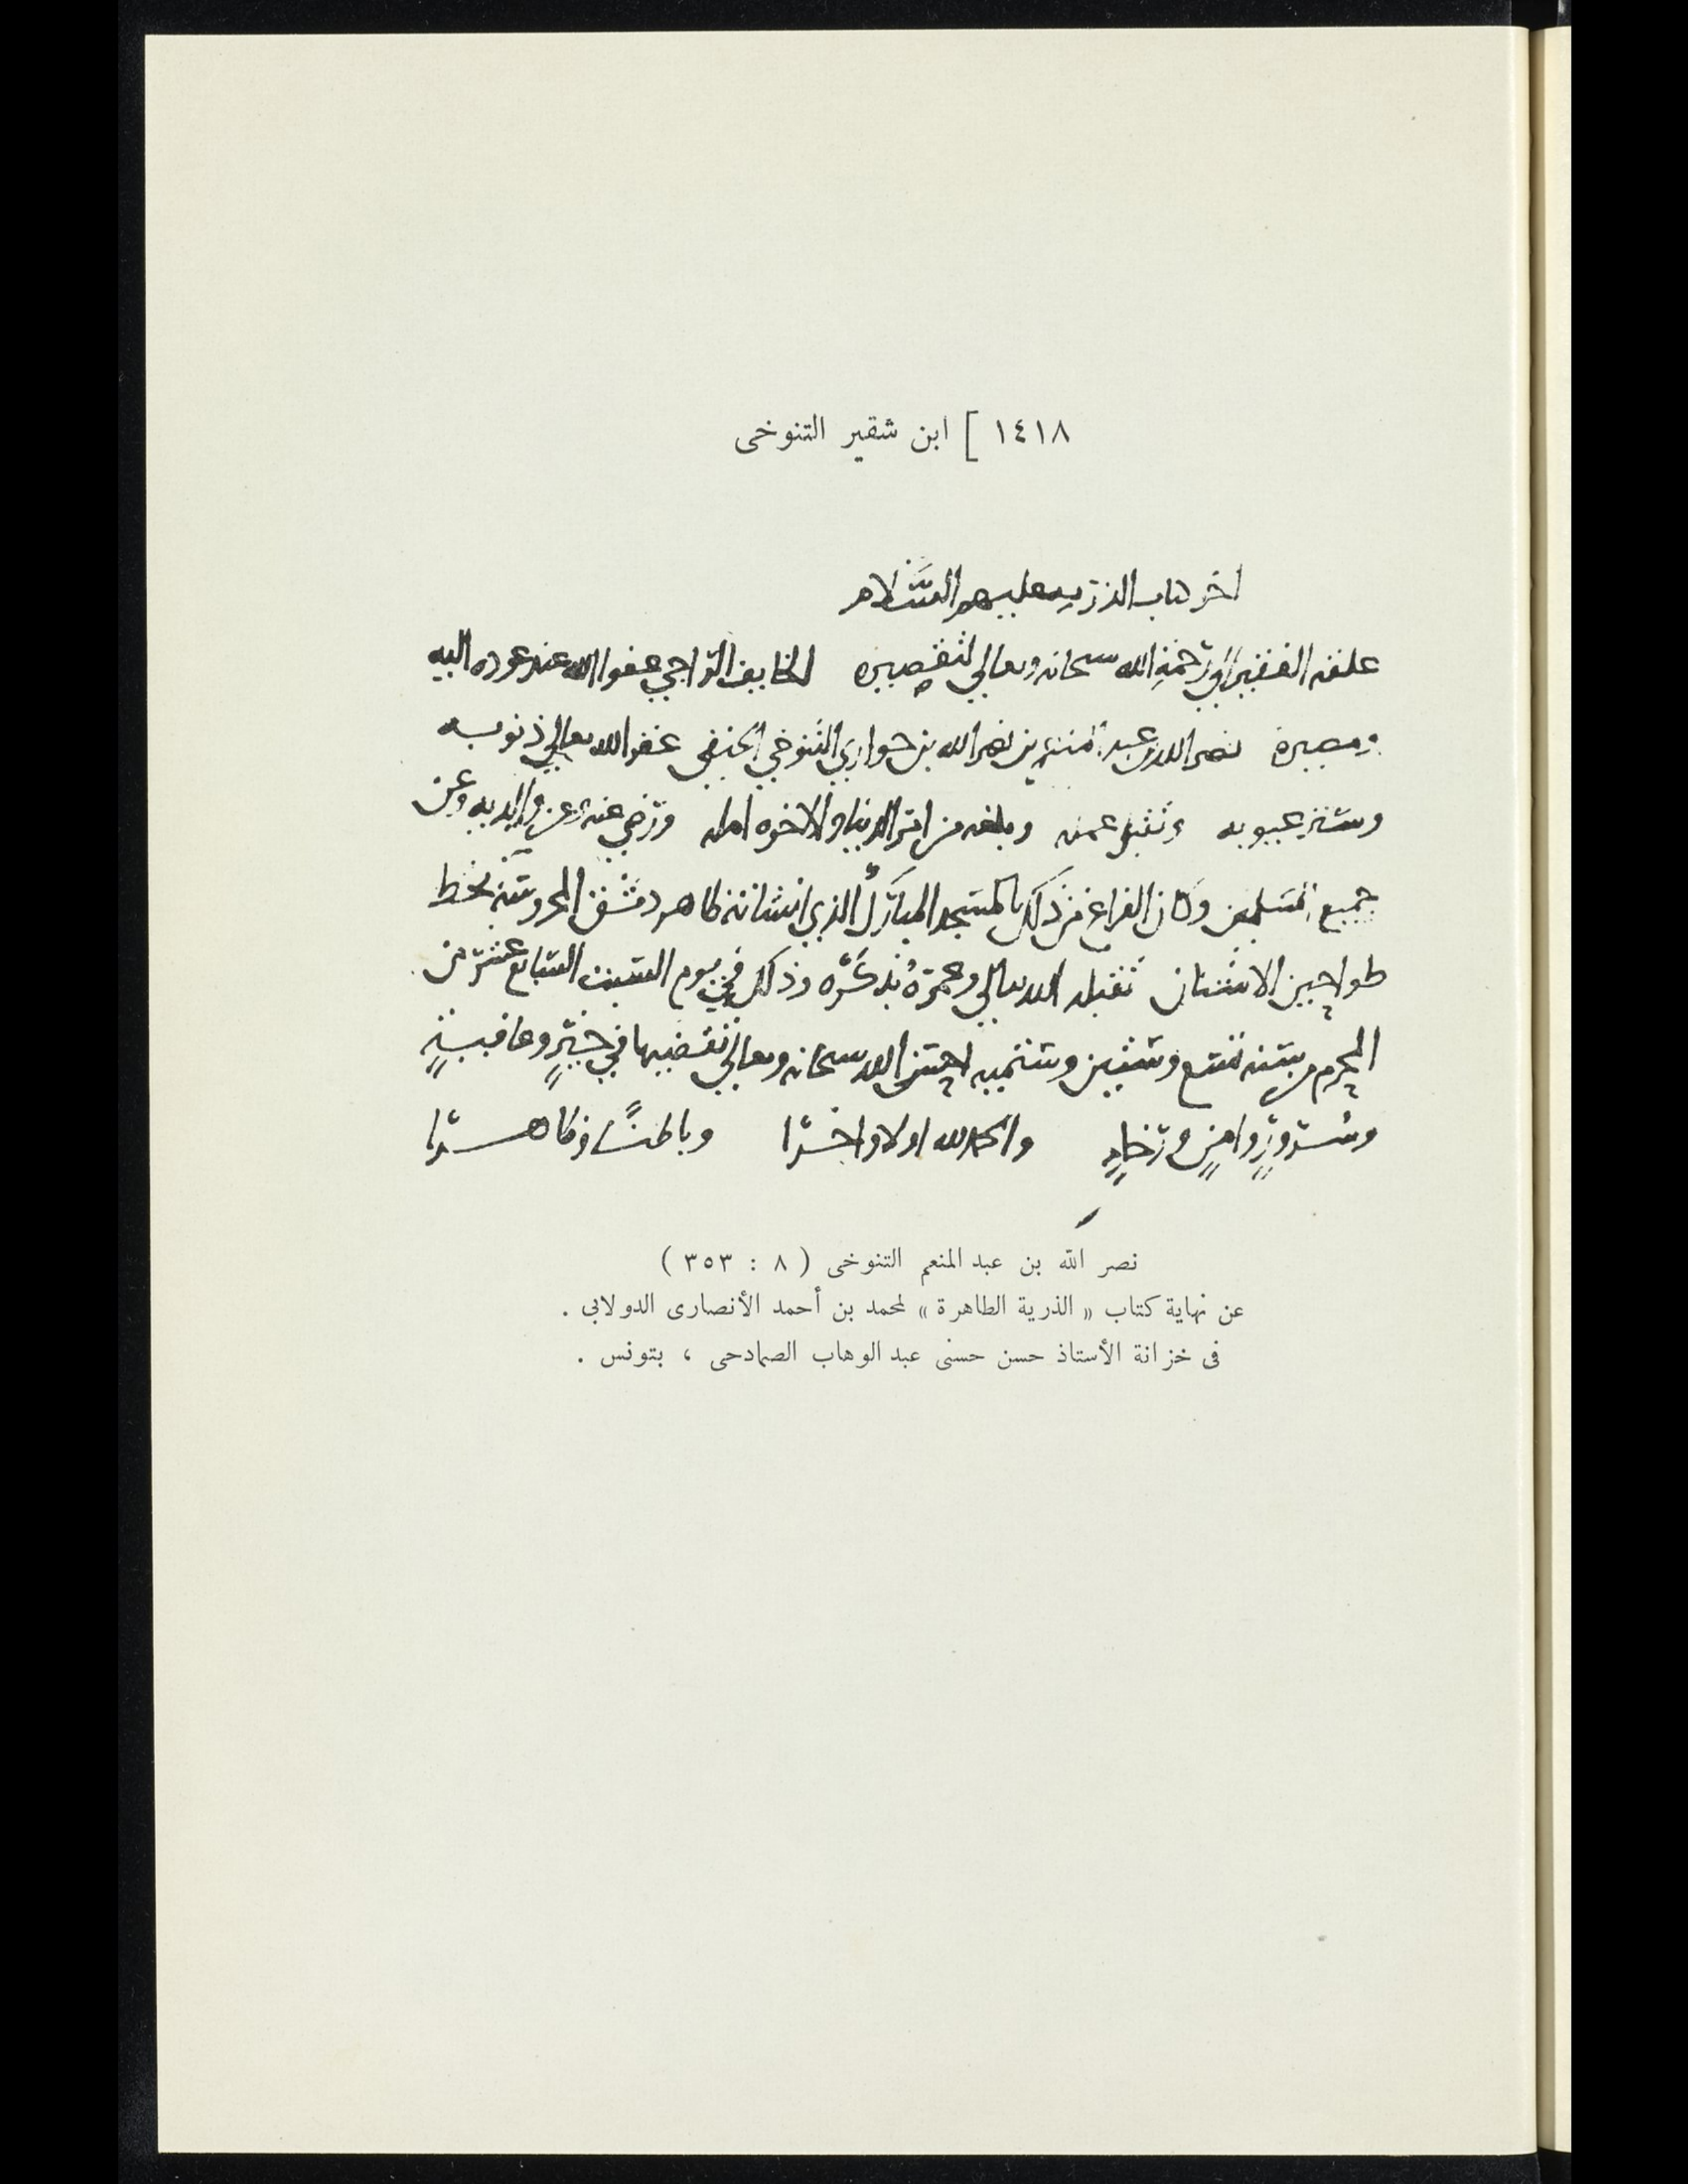 ١٤١٨ ] ابن شقير التنوخى
اخر كتاب الذرية عليهم السلام
علقه الفقير الى رحمة الله سبحانه وتعالى لتقصيره الخايف الراجي عفو الله عند عوده اليه
ومصيره نصر الله بن عبد المنعم بن نصر الله بن حواري التنوخي الحنفي غفر الله تعالى ذنوبه
وستر عيوبه وتقبل عمله وبلغه من امر الدنيا والاخره امله ورضي عنه وعن والديه وعن
جميع المسلمين وكان الفراغ من ذلك بالمسجد المبارك الذي انشاته ظاهر دمشق المحروسة بخط
طواحين الاشنان تقبله الله تعالى وعمره بذكره وذلك في يوم السبت السابع عشر من
المحرم سنة تسع وستين وستميه احسن الله سبحانه وتعالى تقضيها في خيرٍ وعافيةٍ
وسرورٍ وامنٍ ورخاءٍ والحمد لله اولا واخرا وباطنًا وظاهرا
نصر الله بن عبد المنعم التنوخى ( ٨ : ٣٥٣ )
عن نهاية كتاب « الذرية الطاهرة » لمحمد بن أحمد الأنصارى الدولابى .
فى خزانة الأستاذ حسن حسنى عبد الوهاب الصمادحى ، بتونس .